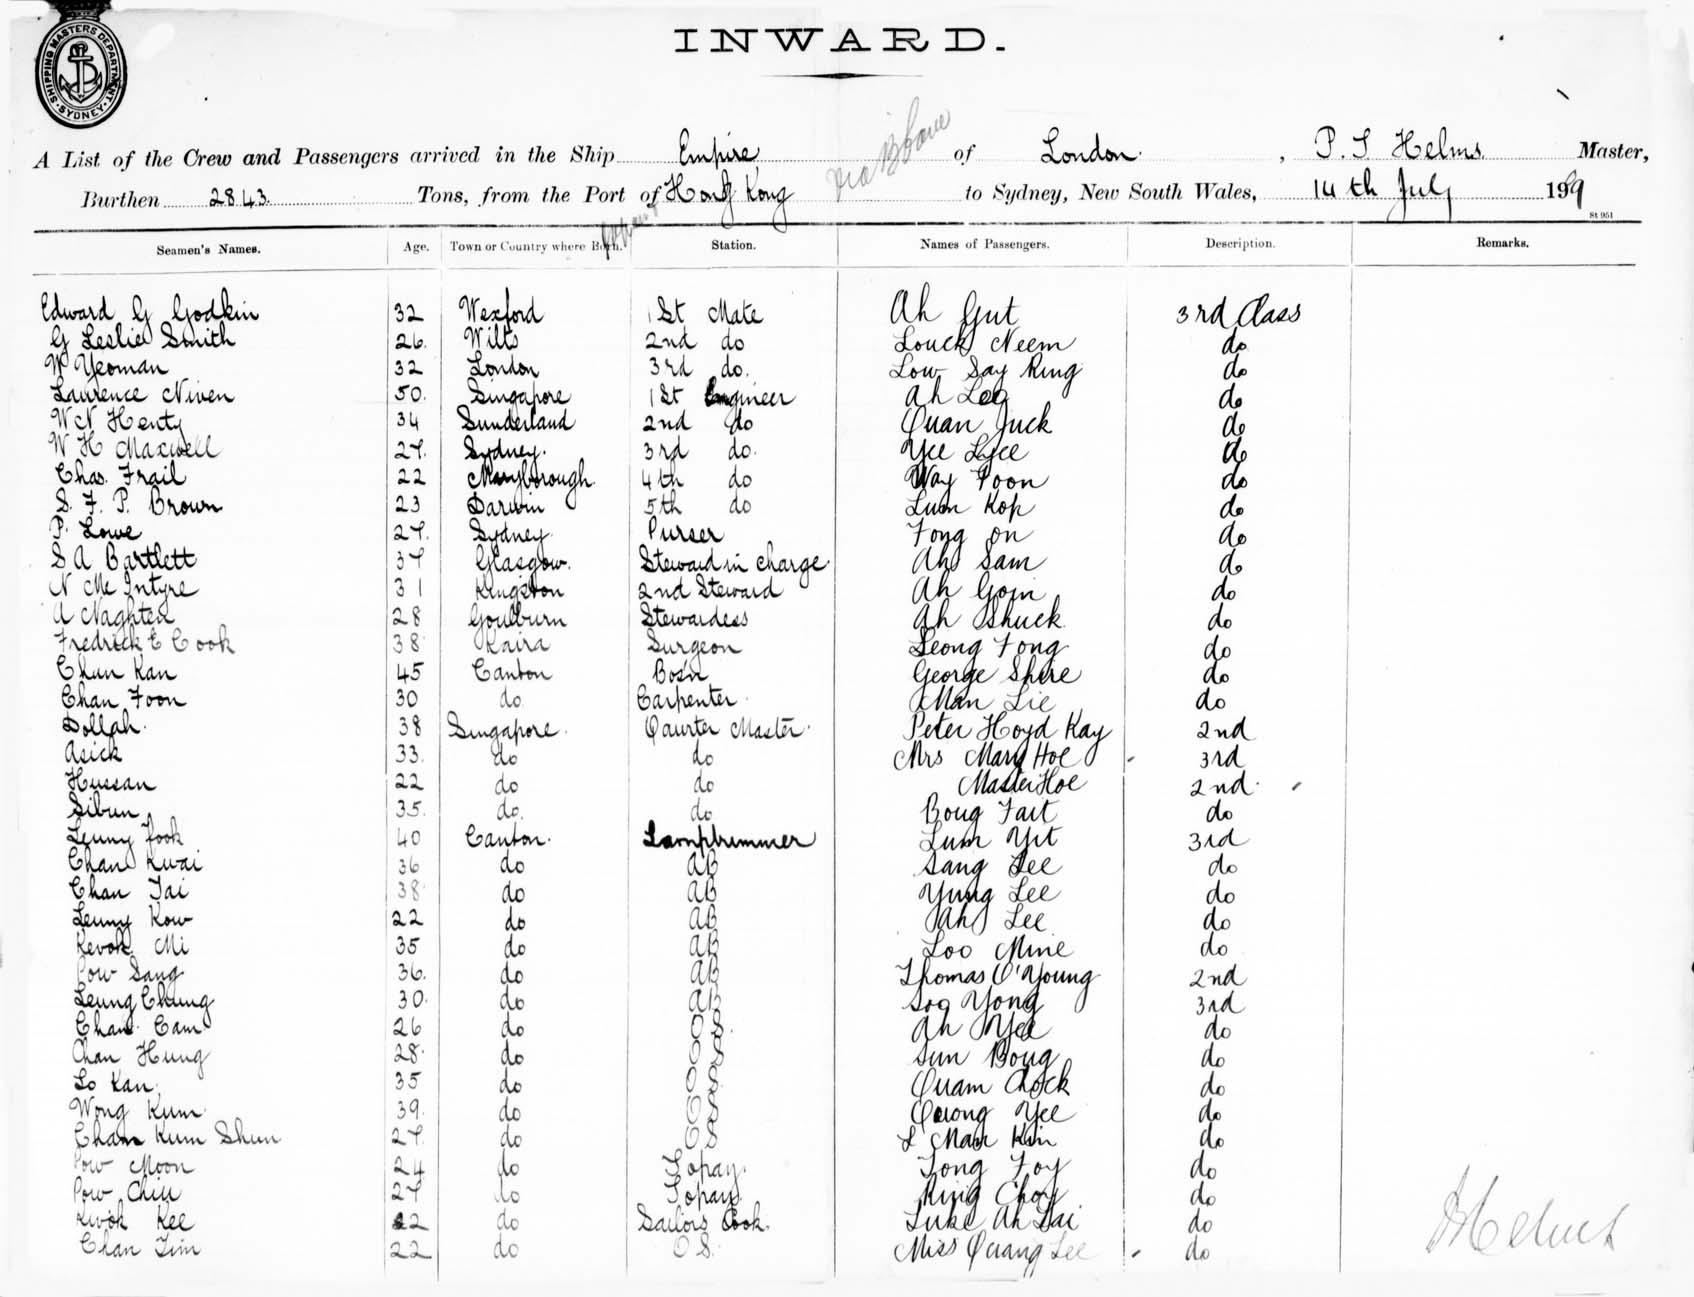 SHIPPING MASTERS DEPARTMENT SYDNEY
INWARD.
A List of the Crew and Passengers arrived in the Ship Empire of London, P. T Helms Master,
Burthen 2843 Tons, from the Port of Hong Kong via Bbane to Sydney, New South Wales, 14th July 1909
St 951
Seamen's Names. Age. Town or Country where Born. Station. Names of Passengers. Description. Remarks.
Edward G Godkin 32 Wexford 1st Mate Ah Gut 3rd Class
G Leslie Smith 26. Wilts 2nd do Louck Neem do
W Yeoman 32 London 3rd do. Low Say Ring do
Laurence Niven 50. Singapore 1st Engineer Ah Lee do
W N Henty 34 Sunderland 2nd do Quan Juck do
W H Maxwell 27. Sydney. 3rd do. Yee Lyee do
Chas. Frail 22 Maryborough. 4th do Way Poon do
S. F. P. Brown 23 Darwin 5th do Lum Kop do
P. Lowe 27. Sydney. Purser Fong on do
S A Bartlett 37 Glasgow. Steward in charge. Ah Sam do
N McIntyre 31 Kingston 2nd Steward Ah Goin do
A Naghten 28 Goulburn Stewardess Ah Shuck do
Fredrick E Cook 38 Kaira Surgeon Leong Fong do
Chun Kan 45 Canton Bos'n George Shire do
Chan Foon 30 do. Carpenter. Man Lie do
Dollah. 38 Singapore. Qaurter Master. Peter Hoyd Kay 2nd
Asick 33. do do Mrs Mary Hoe 3rd
Hussan 22 do do Master Hoe 2nd
Sibun 35. do. do Boug Fait do
Leung Fook 40 Canton. Lamptrimmer Lum Yit 3rd
Chan Kwai 36 do AB Sang Lee do
Chan Tai 38 do AB Yung Lee do
Leung Kow 22 do AB Ah Lee do
Kwok Mi 35 do AB Loo Mine do
Pow Sang 36. do AB Thomas O'Young 2nd
Leung Chung 30. do AB Soo Yong 3rd
Chan Cam 26 do OS. Ah Yee do
Chan Hung 28. do OS Sun Boug do
Lo Kan. 35 do OS Quam Chock do
Wong Kum 39. do OS Quong Yee do
Chan Kum Shun 27. do OS L Man Kin do
Pow Moon 24 do Topay. Tong Foy do
Pow Chiu 27 do Topay. King Choy do
Kwok Kee 22 do Sailors Cook. Luke Ah Dai do
Chan Tim 22 do OS. Miss Quang Lee do
Helms